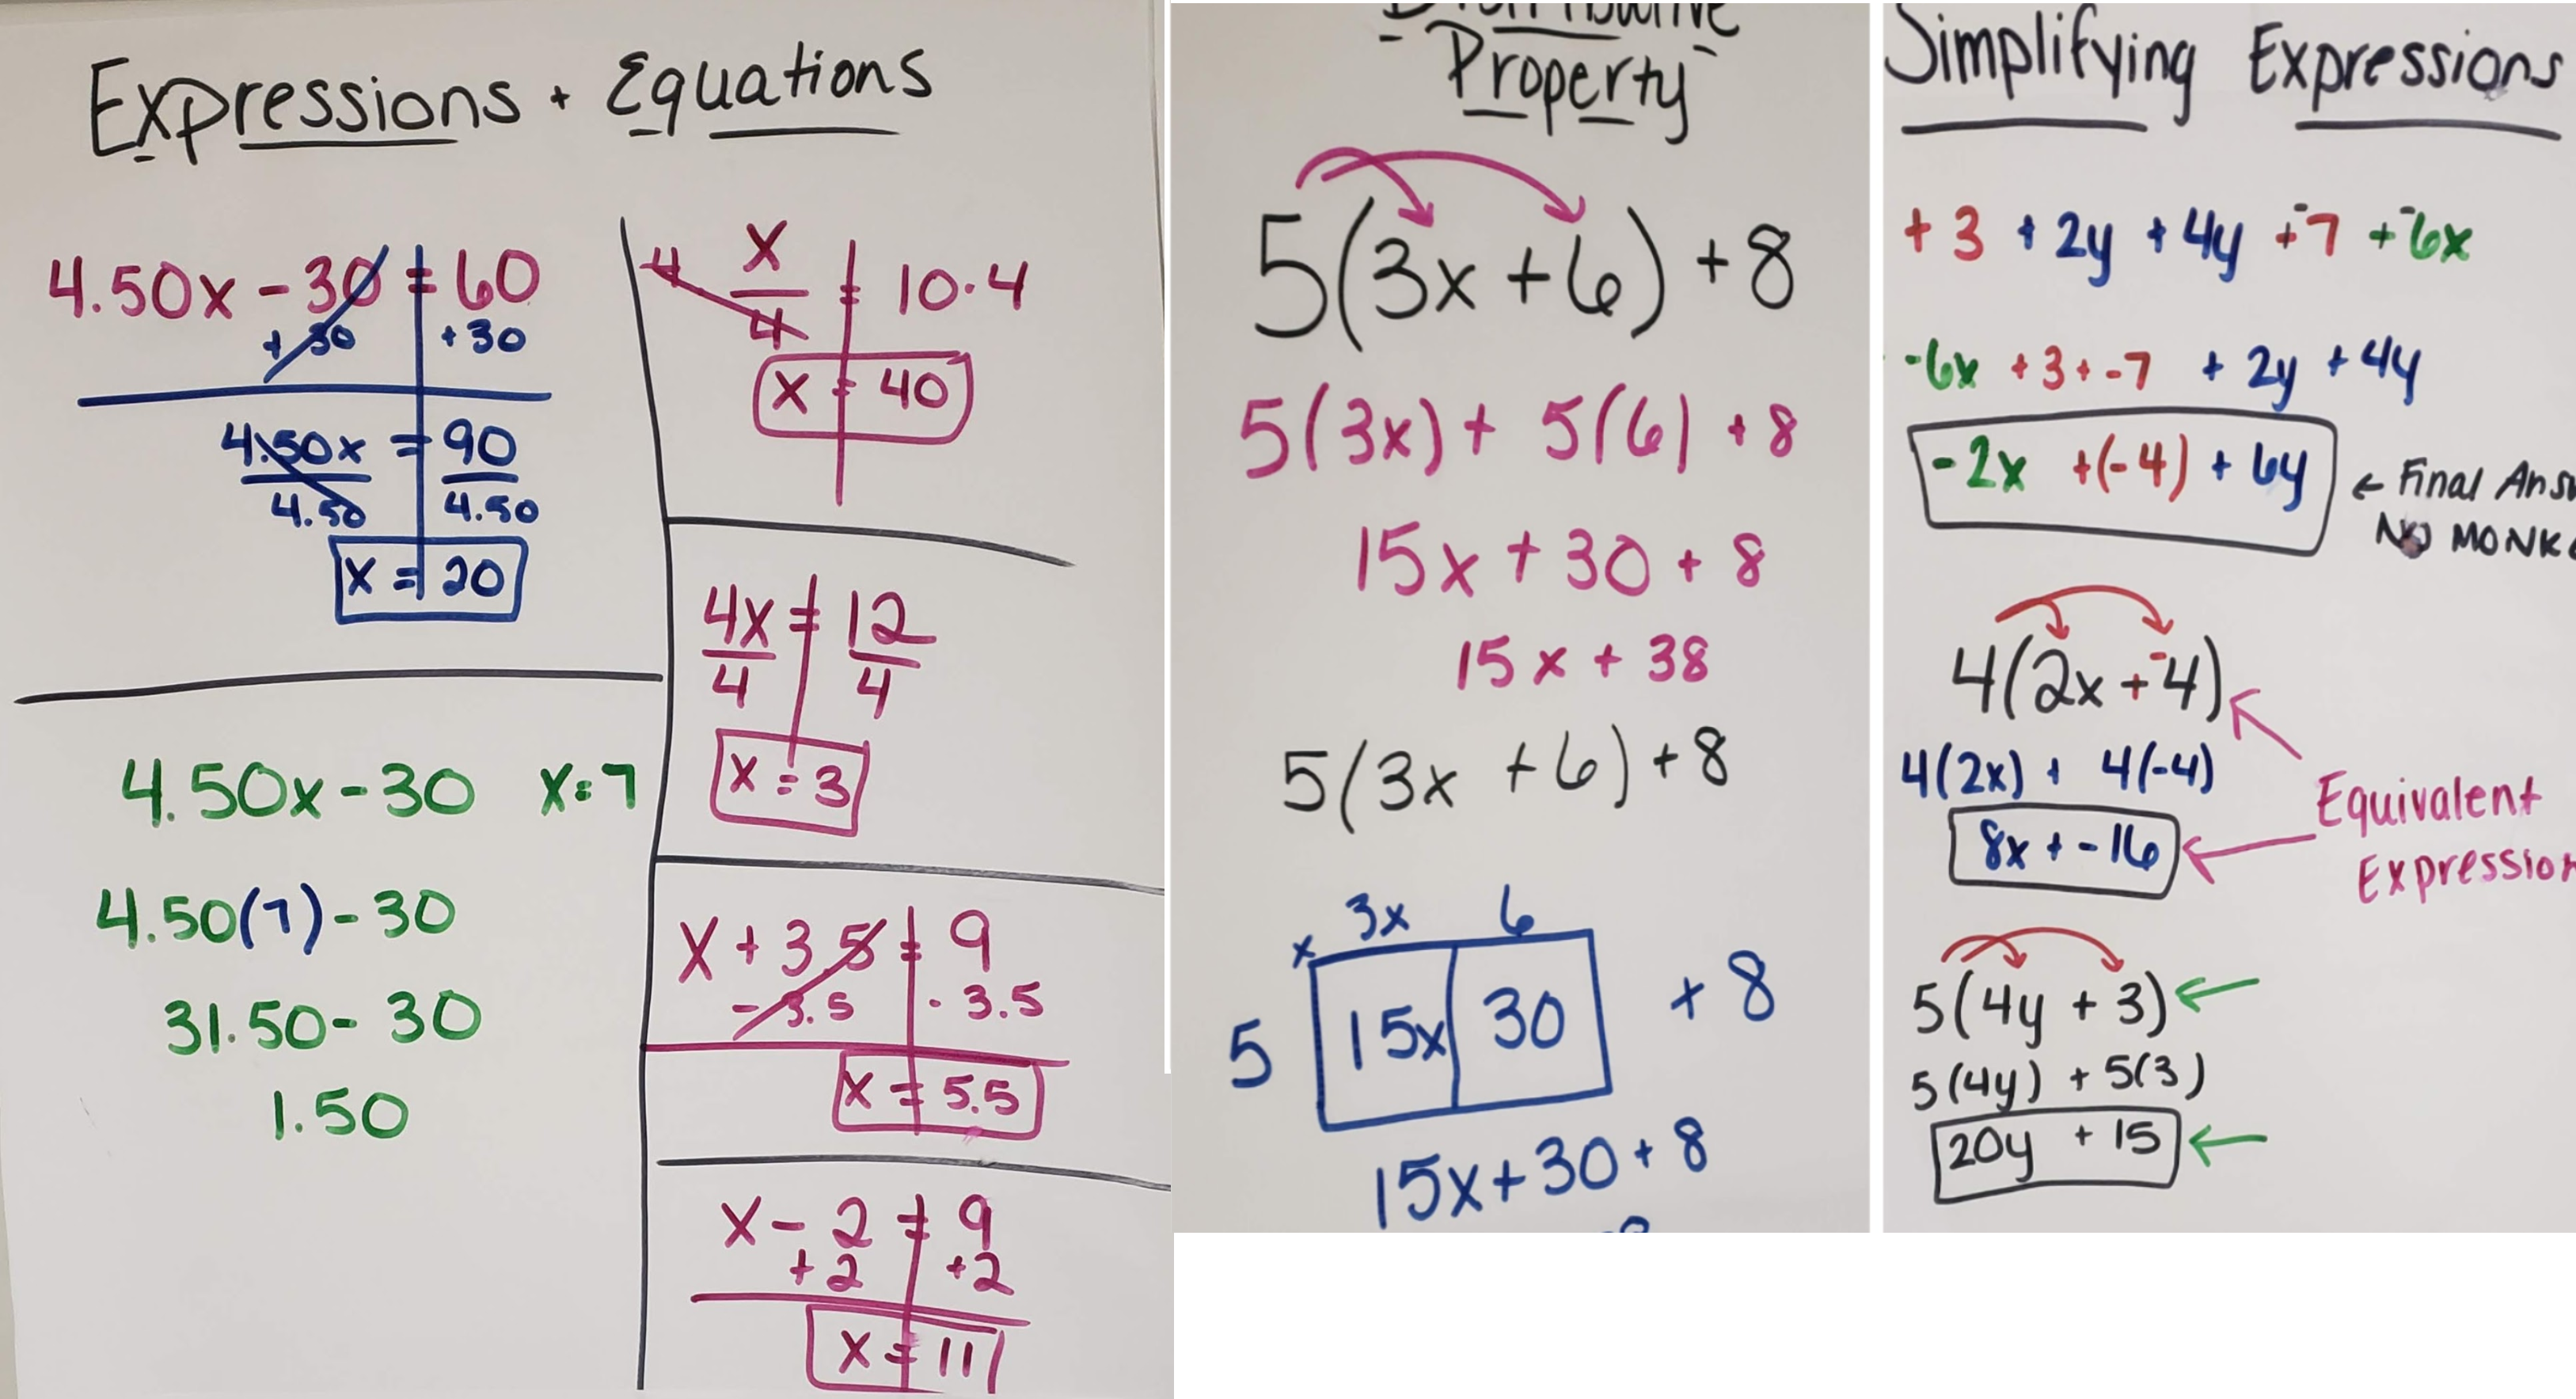 Expressions + Equations
4.50x - 30 = 60
+ 30 +30
4.50x = 90
4.50 4.50
x = 20
4.50x - 30 x = 7
4.50(7) - 30
31.50 - 30
1.50
4 x = 10 · 4
4
x = 40
4x = 12
4 4
x = 3
x + 3.5 = 9
- 3.5 - 3.5
x = 5.5
x - 2 = 9
+ 2 + 2
x = 11
Distributive
Property
5(3x + 6) + 8
5(3x) + 5(6) + 8
15x + 30 + 8
15x + 38
5(3x + 6) + 8
x 3x 6
5 15x 30 + 8
15x + 30 + 8
Simplifying Expressions
+ 3 + 2y + 4y + -7 + -6x
-6x + 3 + -7 + 2y + 4y
-2x + (-4) + 6y
← Final Ans
No MONK
4(2x + -4)
4(2x) + 4(-4)
8x + -16
Equivalent
Expression
5(4y + 3)
5(4y) + 5(3)
20y + 15